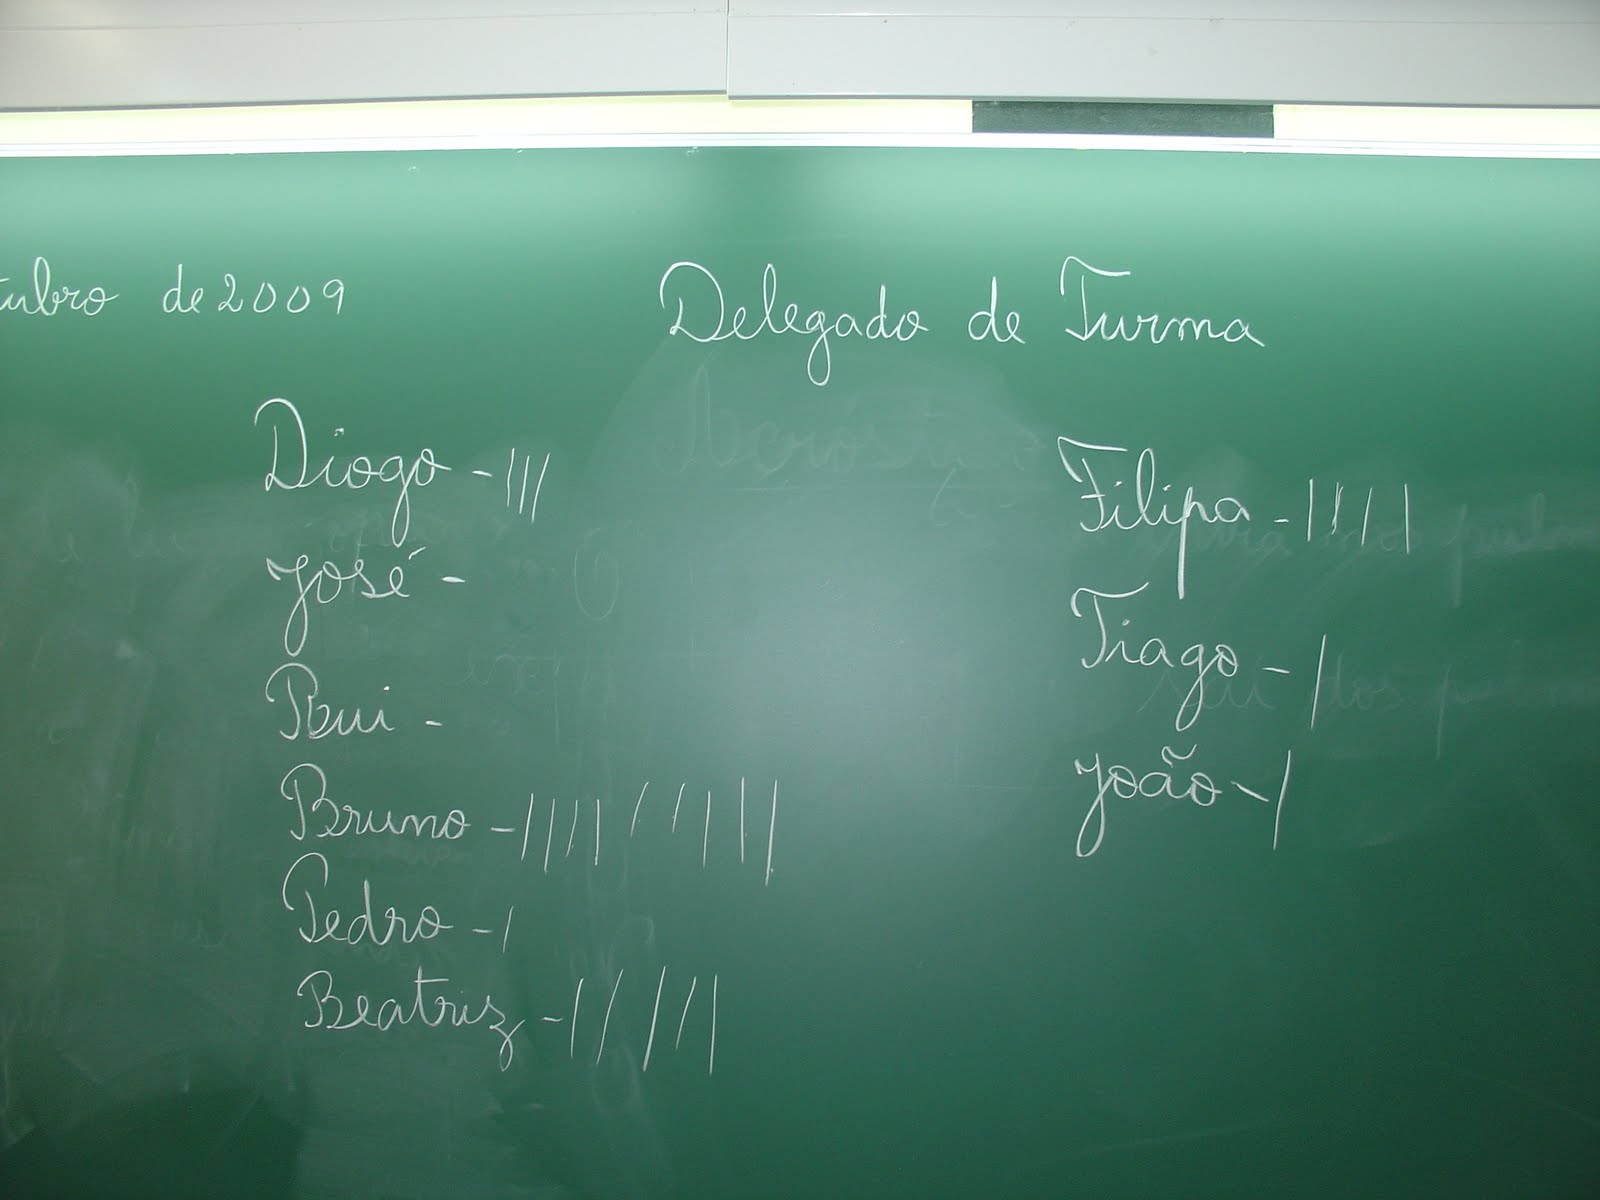 de 2009
Delegado de Turma
Diogo - |||
José -
Rui -
Bruno - |||||||||| 
Pedro - |
Beatriz - |||||
Filipa - ||||
Tiago - |
João - |